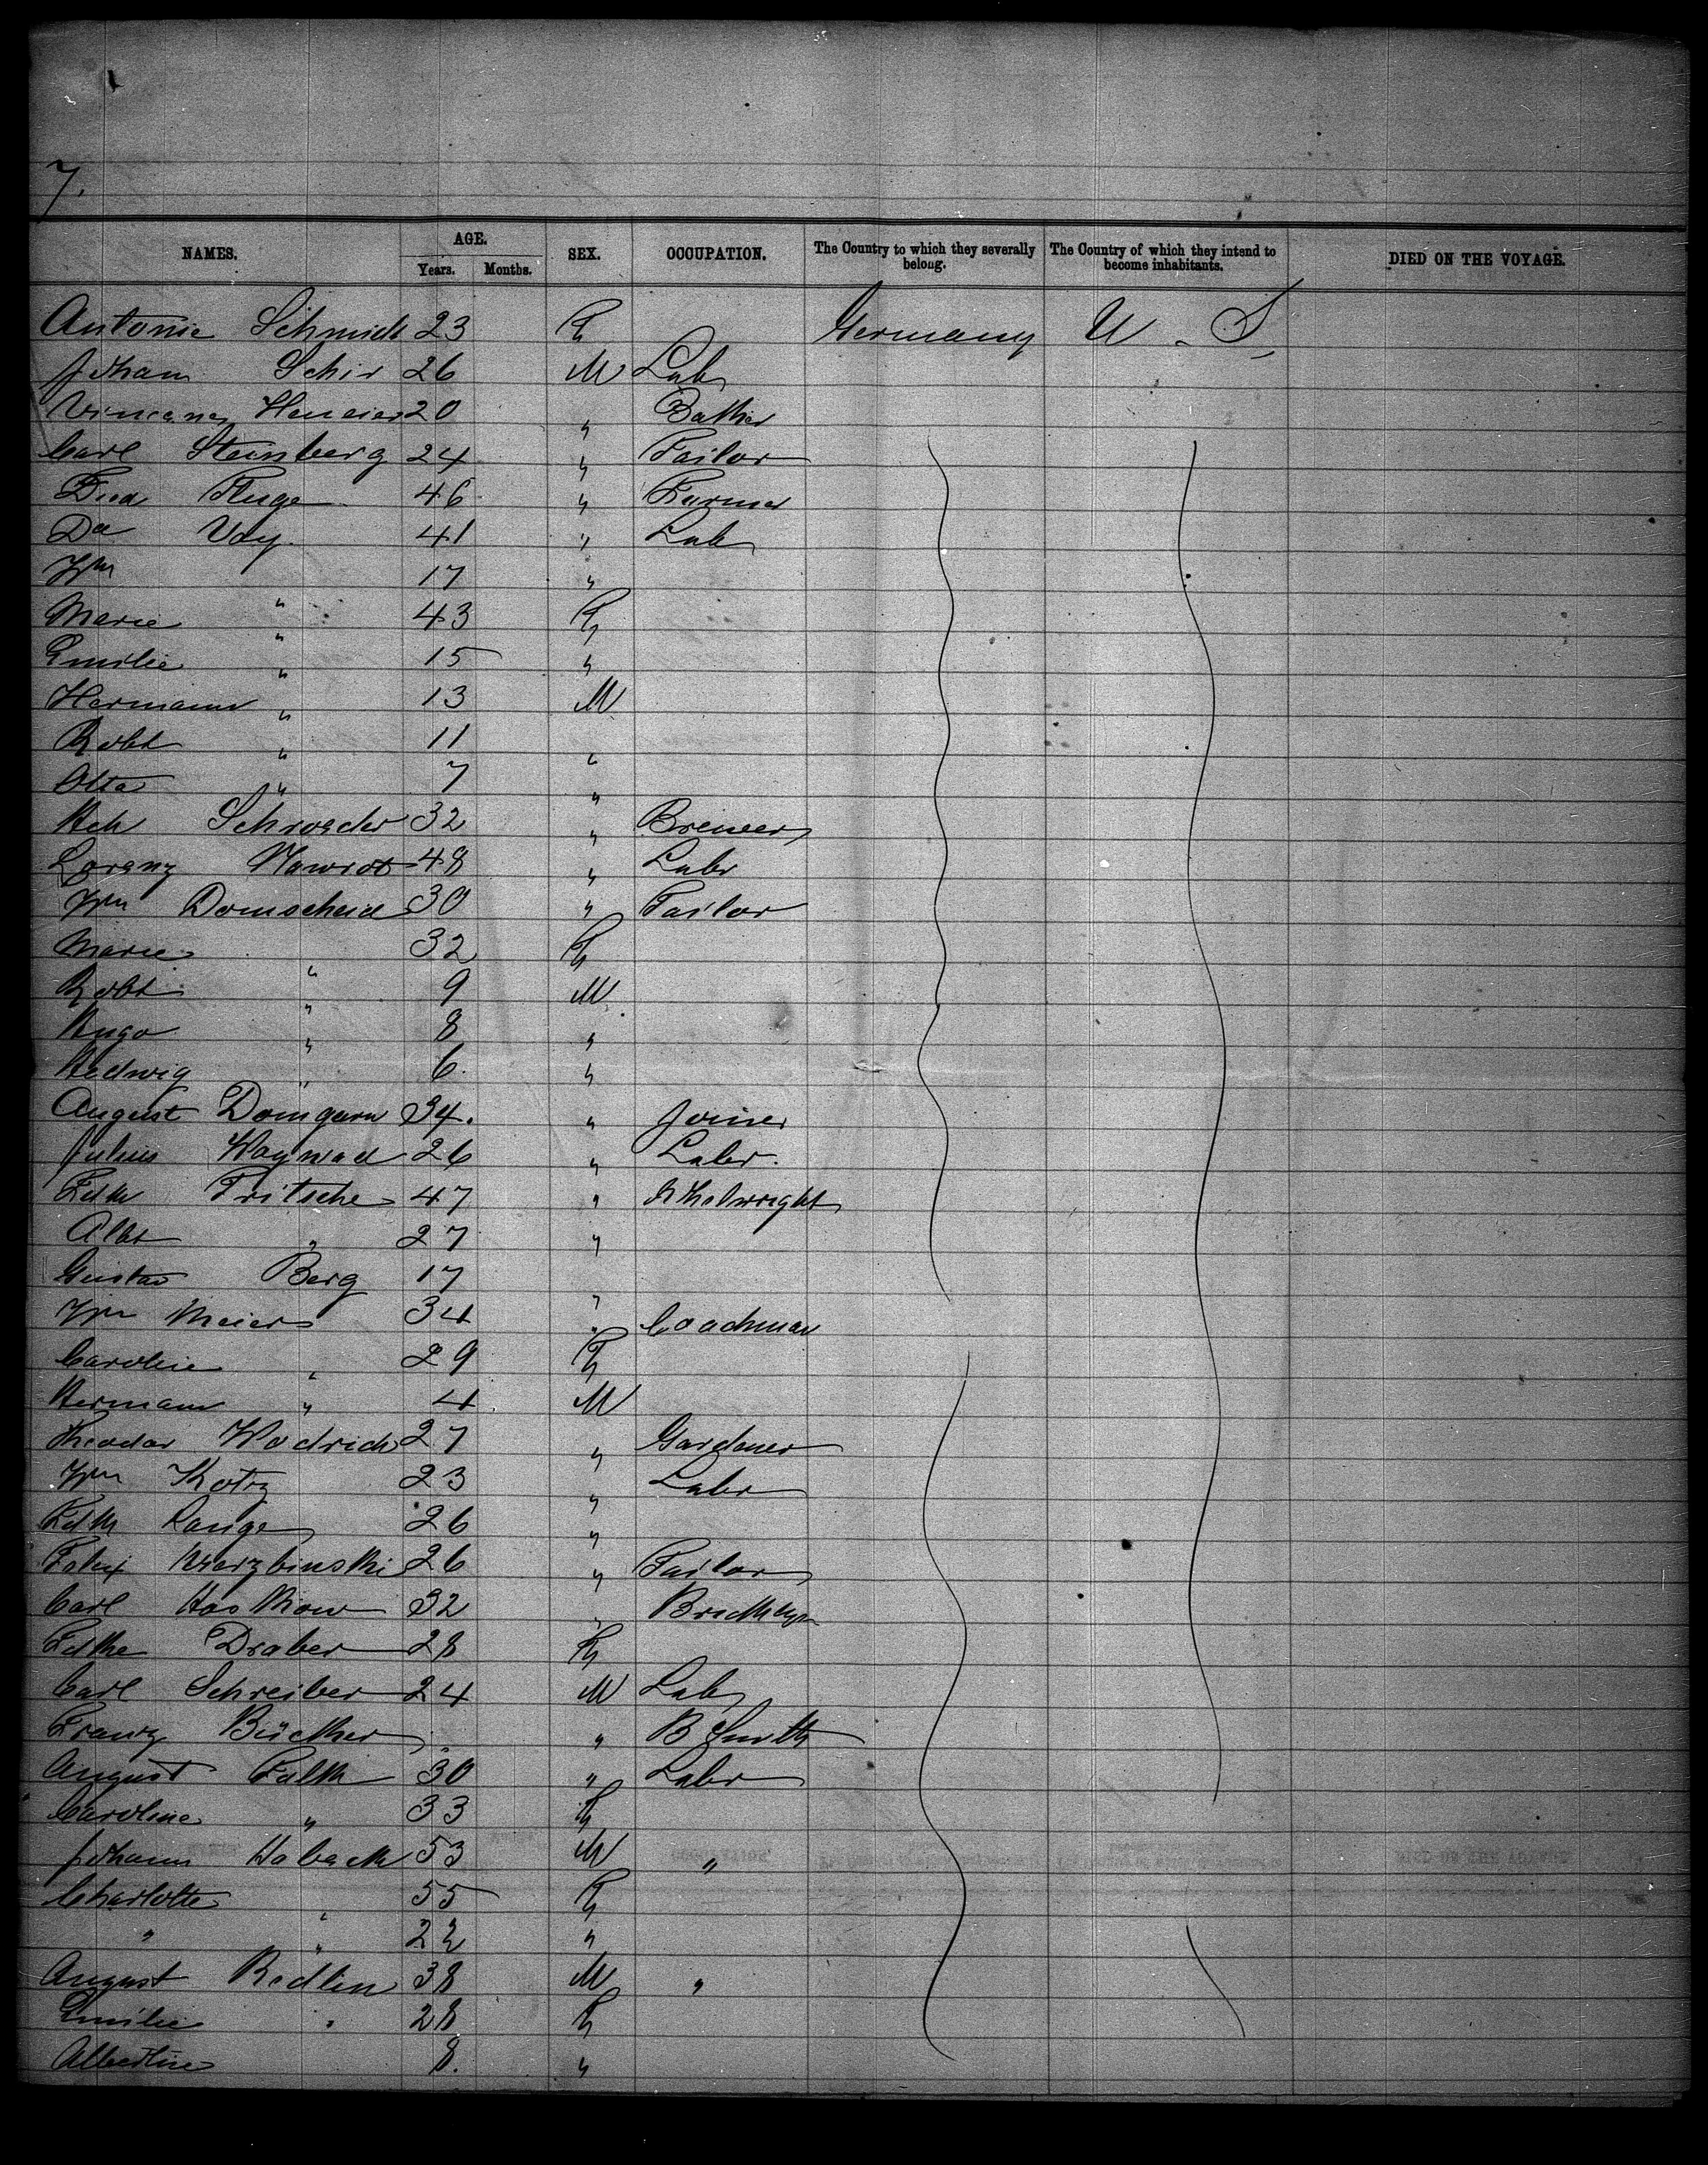 7.
NAMES. AGE. Years. Months. SEX. OCCUPATION. The Country to which they severally belong. The Country of which they intend to become inhabitants. DIED ON THE VOYAGE.
Antonie Schmidt 23 F Germany U. S.
Johann Schir 26 M Lab
20 "
Carl Steinberg 24 " Tailor
Fluge 46 " Farmer
Voy 41 " Lab
Wm " 17 "
Marie " 43 F
Emilie " 15 "
Hermann " 13 M
Robt " 11 "
Otto " 7 "
Hch Schroeder 32 " Brewer
Lorenz Nawrot 48 " Labr
Wm Domscheid 30 " Tailor
Marie " 32 F
Robt " 9 M
Hugo " 8 "
Hedwig " 6 "
August Domgarn 34. " Joiner
Julius 26 " Labr.
Fritsche 47 " Whelwright
Albt " 27 "
Gustav Berg 17 "
Wm Meier 34 " Coachman
Caroline " 29 F
Hermann " 4 M
Theodor Wodrich 27 " Gardener
Wm Kotz 23 " Labr
Lange 26 "
Felix Wierzbinski 26 " Tailor
Carl 32 "
Draber 28 F
Carl Schreiber 24 M Lab
Franz Bücker " B Smith
August Falk 30 " Labr
Caroline " 33 F
Johann Haback 53 M "
Charlotte " 55 F
" " 22 "
August Redlin 38 M "
Emilie " 28 F
Albertine 8. "